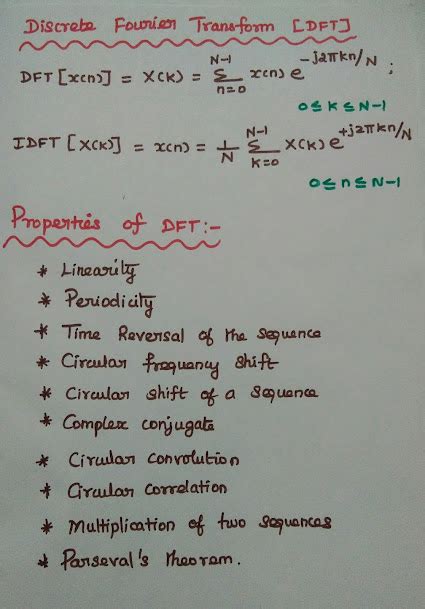 Discrete Fourier Transform [DFT]
DFT [x(n)] = X(k) = N-1 Σ n=0 x(n) e^-j2πkn/N ;
0 ≤ k ≤ N-1
IDFT [X(k)] = x(n) = 1/N N-1 Σ k=0 X(k) e^+j2πkn/N
0 ≤ n ≤ N-1
Properties of DFT:-
* Linearity
* Periodicity
* Time Reversal of the sequence
* Circular frequency shift
* Circular shift of a sequence
* Complex conjugate
* Circular convolution
* Circular correlation
* Multiplication of two sequences
* Parseval's theorem.